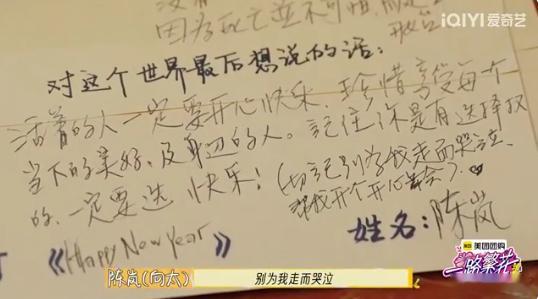 iQIYI 爱奇艺
因为死亡並不可怕
对这个世界最后想说的话:
活着的人一定要开心快乐.珍惜享受每个
当下的美好.及身边的人。記住你是有选择权
的.一定要选 快乐!(切記别为我走而哭泣.
帮我开个开心
姓名:陈岚
《Happy New Year》
陈岚(向太)
别为我走而哭泣
美团团购